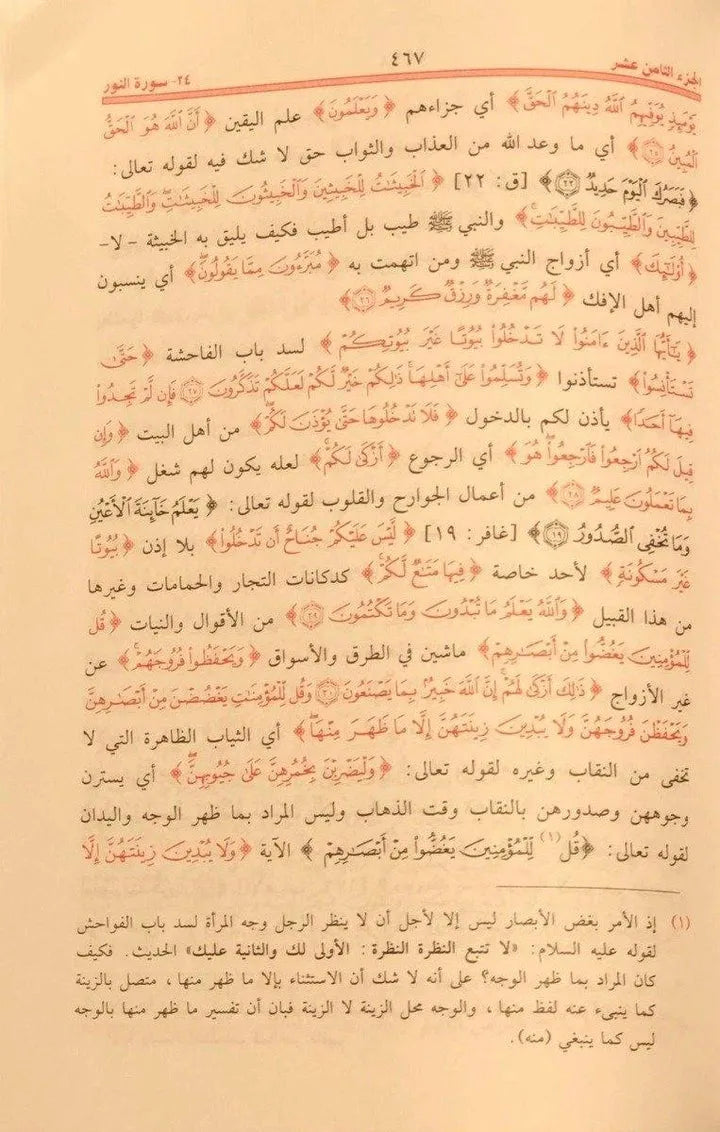 الجزء الثامن عشر
٤٦٧
٢٤- سورة النور
يَوْمَئِذٍ يُوَفِّيهِمُ اللَّهُ دِينَهُمُ الْحَقَّ﴾ أي جزاءهم ﴿وَيَعْلَمُونَ﴾ علم اليقين ﴿أَنَّ اللَّهَ هُوَ الْحَقُّ
الْمُبِينُ ٢٥﴾ أي ما وعد الله من العذاب والثواب حق لا شك فيه لقوله تعالى:
﴿فَبَصَرُكَ الْيَوْمَ حَدِيدٌ ٢٢﴾ [ق: ٢٢] ﴿الْخَبِيثَاتُ لِلْخَبِيثِينَ وَالْخَبِيثُونَ لِلْخَبِيثَاتِ وَالطَّيِّبَاتُ
لِلطَّيِّبِينَ وَالطَّيِّبُونَ لِلطَّيِّبَاتِ﴾ والنبي ﷺ طيب بل أطيب فكيف يليق به الخبيثة - لا-
﴿أُوْلَٰئِكَ﴾ أي أزواج النبي ﷺ ومن اتهمت به ﴿مُبَرَّءُونَ مِمَّا يَقُولُونَ﴾ أي ينسبون
إليهم أهل الإفك ﴿لَهُم مَّغْفِرَةٌ وَرِزْقٌ كَرِيمٌ ٢٦﴾
﴿يَٰأَيُّهَا الَّذِينَ ءَامَنُوا لَا تَدْخُلُوا بُيُوتًا غَيْرَ بُيُوتِكُمْ﴾ لسد باب الفاحشة ﴿حَتَّىٰ
تَسْتَأْنِسُوا﴾ تستأذنوا ﴿وَتُسَلِّمُوا عَلَىٰ أَهْلِهَا ذَٰلِكُمْ خَيْرٌ لَّكُمْ لَعَلَّكُمْ تَذَكَّرُونَ ٢٧ فَإِن لَّمْ تَجِدُوا
فِيهَا أَحَدًا﴾ يأذن لكم بالدخول ﴿فَلَا تَدْخُلُوهَا حَتَّىٰ يُؤْذَنَ لَكُمْ﴾ من أهل البيت ﴿وَإِن
قِيلَ لَكُمُ ارْجِعُوا فَارْجِعُوا هُوَ﴾ أي الرجوع ﴿أَزْكَىٰ لَكُمْ﴾ لعله يكون لهم شغل ﴿وَاللَّهُ
بِمَا تَعْمَلُونَ عَلِيمٌ ٢٨﴾ من أعمال الجوارح والقلوب لقوله تعالى: ﴿يَعْلَمُ خَآئِنَةَ الْأَعْيُنِ
وَمَا تُخْفِي الصُّدُورُ ١٩﴾ [غافر: ١٩] ﴿لَّيْسَ عَلَيْكُمْ جُنَاحٌ أَن تَدْخُلُوا﴾ بلا إذن ﴿بُيُوتًا
غَيْرَ مَسْكُونَةٍ﴾ لأحد خاصة ﴿فِيهَا مَتَاعٌ لَّكُمْ﴾ كدكانات التجار والحمامات وغيرها
من هذا القبيل ﴿وَاللَّهُ يَعْلَمُ مَا تُبْدُونَ وَمَا تَكْتُمُونَ ٢٩﴾ من الأقوال والنيات ﴿قُل
لِّلْمُؤْمِنِينَ يَغُضُّوا مِنْ أَبْصَارِهِمْ﴾ ماشين في الطرق والأسواق ﴿وَيَحْفَظُوا فُرُوجَهُمْ﴾ عن
غير الأزواج ﴿ذَٰلِكَ أَزْكَىٰ لَهُمْ إِنَّ اللَّهَ خَبِيرٌ بِمَا يَصْنَعُونَ ٣٠ وَقُل لِّلْمُؤْمِنَاتِ يَغْضُضْنَ مِنْ أَبْصَارِهِنَّ
وَيَحْفَظْنَ فُرُوجَهُنَّ وَلَا يُبْدِينَ زِينَتَهُنَّ إِلَّا مَا ظَهَرَ مِنْهَا﴾ أي الثياب الظاهرة التي لا
تخفى من النقاب وغيره لقوله تعالى: ﴿وَلْيَضْرِبْنَ بِخُمُرِهِنَّ عَلَىٰ جُيُوبِهِنَّ﴾ أي يسترن
وجوههن وصدورهن بالنقاب وقت الذهاب وليس المراد بما ظهر الوجه واليدان
لقوله تعالى: ﴿قُل (١) لِّلْمُؤْمِنِينَ يَغُضُّوا مِنْ أَبْصَارِهِمْ﴾ الآية ﴿وَلَا يُبْدِينَ زِينَتَهُنَّ إِلَّا
(١) إذ الأمر بغض الأبصار ليس إلا لأجل أن لا ينظر الرجل وجه المرأة لسد باب الفواحش
لقوله عليه السلام: «لا تتبع النظرة النظرة: الأولى لك والثانية عليك» الحديث. فكيف
كان المراد بما ظهر الوجه؟ على أنه لا شك أن الاستثناء بإلا ما ظهر منها، متصل بالزينة
كما ينبىء عنه لفظ منها، والوجه محل الزينة لا الزينة فبان أن تفسير ما ظهر منها بالوجه
ليس كما ينبغي (منه).